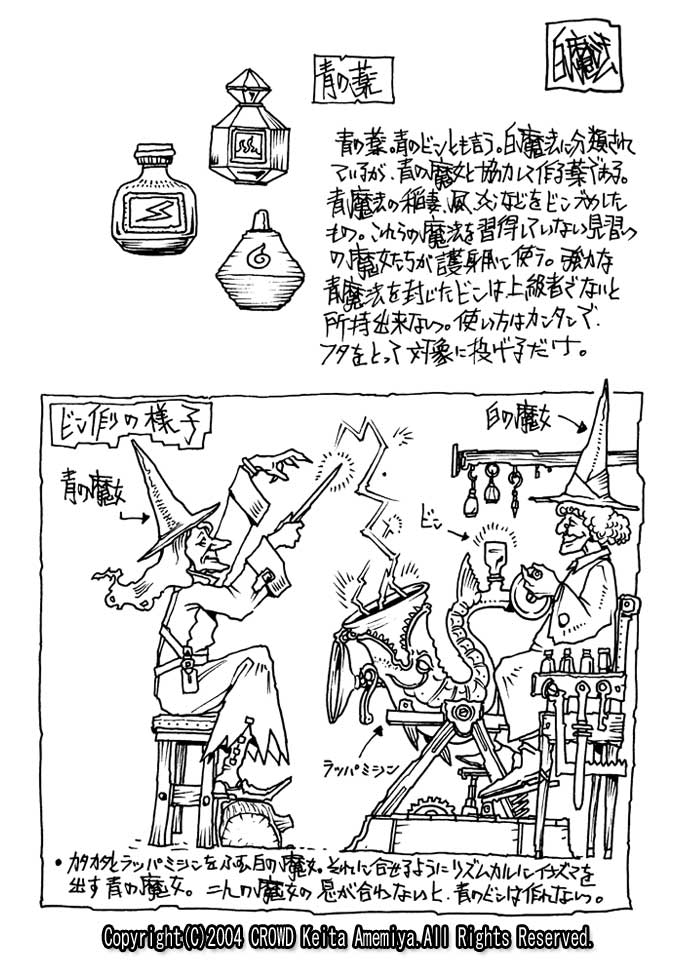 白魔法
青の薬
青の薬。青のビンとも言う。白魔法に分類され
ているが、青の魔女と協力して作る薬である。
青魔法の稲妻、風、炎などをビンづめした
もの。これらの魔法を習得していない見習い
の魔女たちが護身用に使う。強力な
青魔法を封じたビンは上級者でないと
所持出来ない。使い方はカンタンで、
フタをとって対象に投げるだけ。
ビン作りの様子
青の魔女
白の魔女
ビン
ラッパミシン
・カタカタとラッパミシンをふむ白の魔女。それに合せるようにリズムカルにイナズマを
出す青の魔女。二人の魔女の息が合わないと、青のビンは作れない。
Copyright(C)2004 CROWD Keita Amemiya.All Rights Reserved.